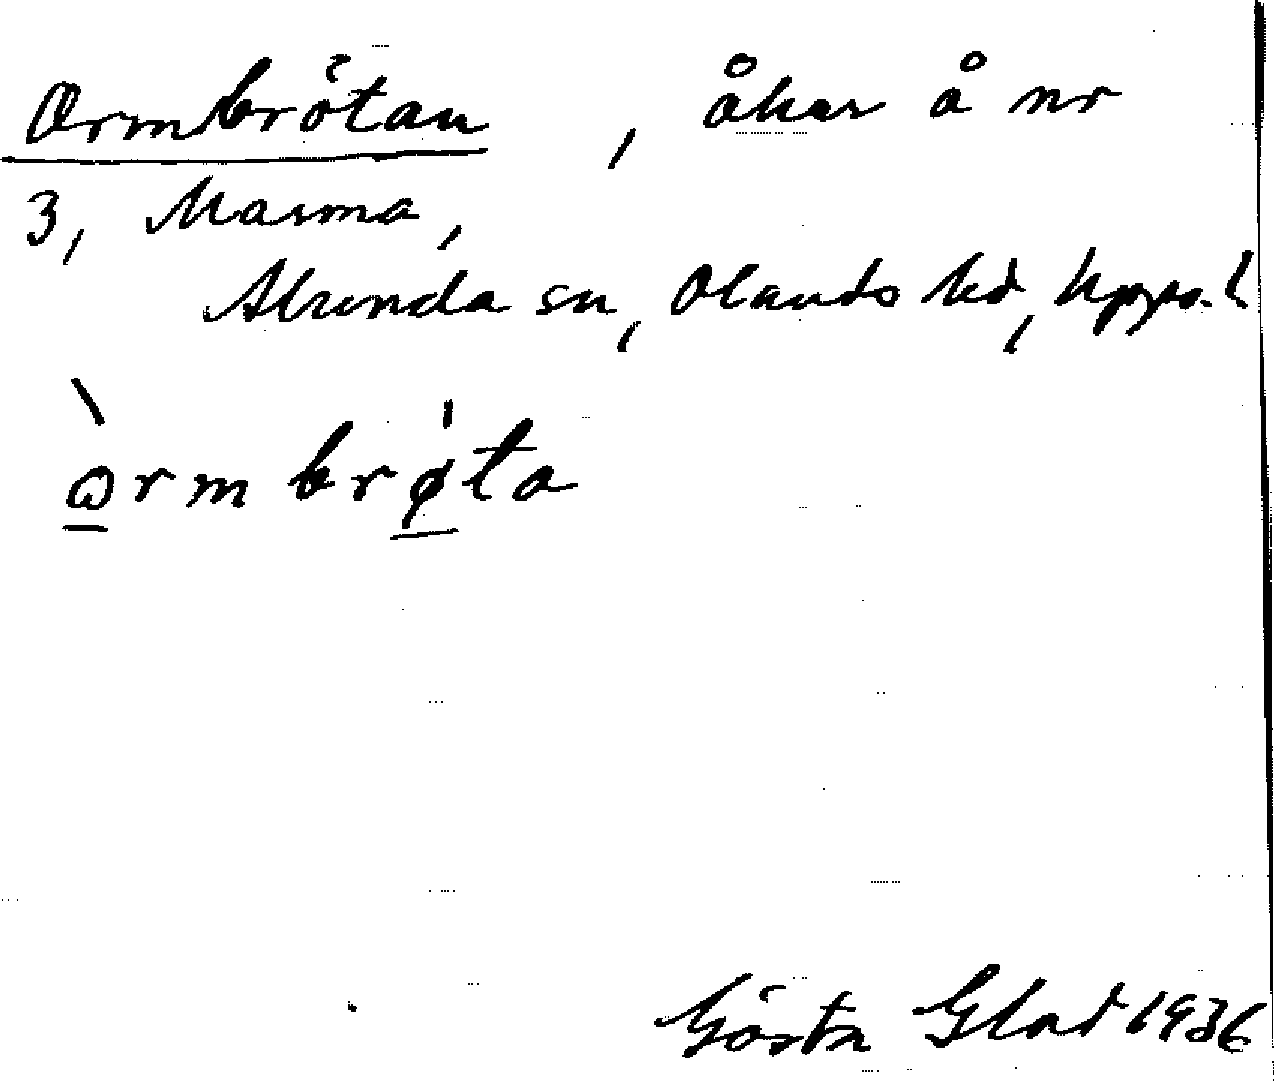 Ormbrötan, åker å nr
3, Marma,
Alunda sn, Olands hd, Upps. l
òrmbrø̍ta
Gösta Glad 1936